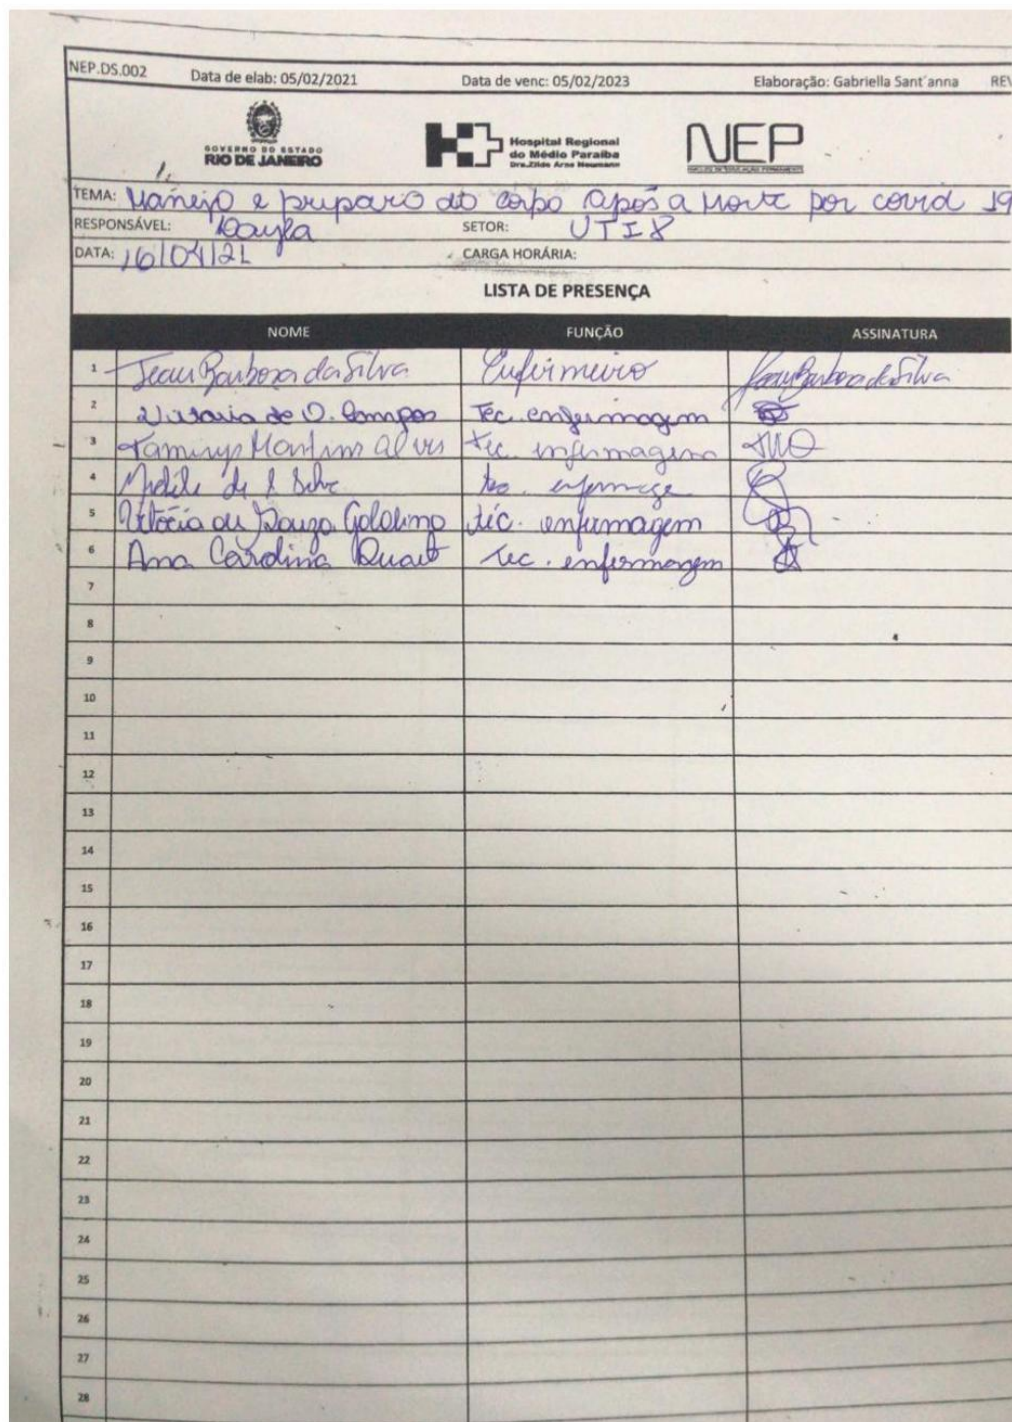 NEP.DS.002 Data de elab: 05/02/2021 Data de venc: 05/02/2023 Elaboração: Gabriella Sant´anna REV
GOVERNO DO ESTADO
RIO DE JANEIRO
Hospital Regional
do Médio Paraíba
Dra.Zilda Arns Neumann
NEP
NÚCLEO DE EDUCAÇÃO PERMANENTE
TEMA: Manejo e preparo do corpo após a morte por covid 19
RESPONSÁVEL: Kayla SETOR: UTI 8
DATA: 16/04/21 CARGA HORÁRIA:
LISTA DE PRESENÇA
NOME FUNÇÃO ASSINATURA
1 Jean Barbosa da Silva Enfermeiro Jean Barbosa da Silva
2 de O. Campos Tec. enfermagem
3 Martins Alves tec. enfermagem
4 de
5 Vitória de Souza téc. enfermagem
6 Ana Carolina Tec. enfermagem
7
8
9
10
11
12
13
14
15
16
17
18
19
20
21
22
23
24
25
26
27
28